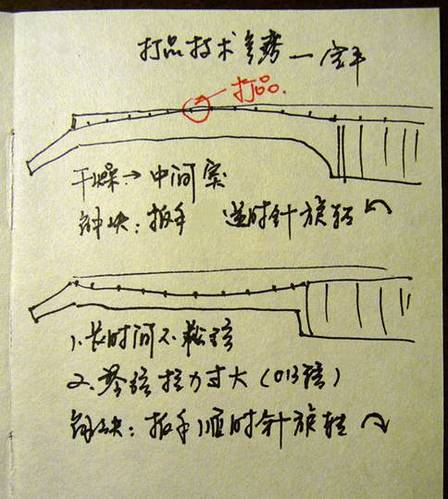 打品技术参考
打品
干燥→中间突
解决：扳手 逆时针旋转
1.长时间不松弦
2.琴弦拉力过大（013弦）
解决：扳手顺时针旋转